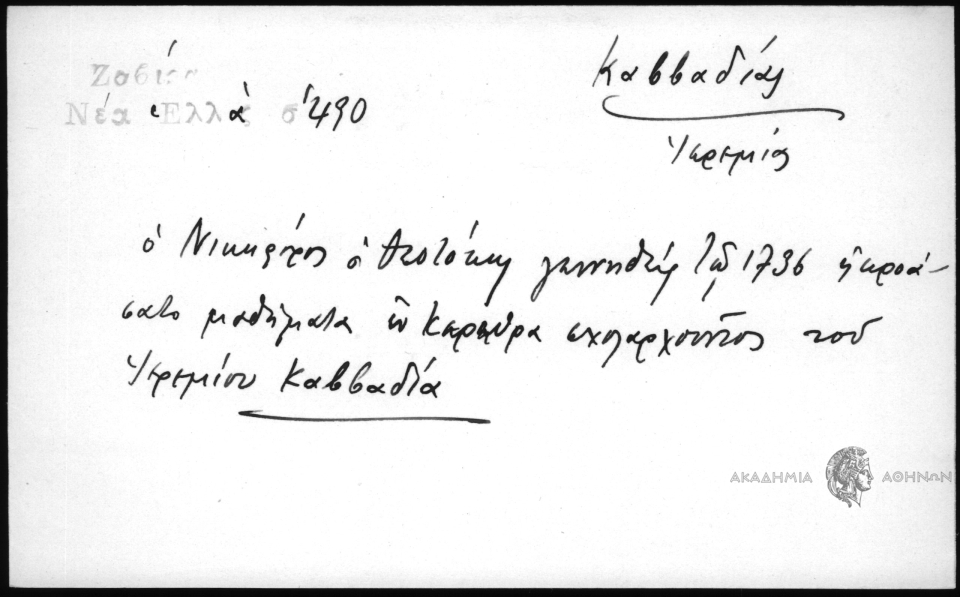 Ζαβίρα
Νέα Ἑλλάς σ 490
Καββαδίας
Ἱερεμίας
ὁ Νικηφόρος ὁ Θεοτόκης γεννηθείς τῷ 1736 ἠκροά-
σατο μαθήματα ἐν Κερκύρα σχολαρχοῦντος τοῦ
Ἱερεμίου Καββαδία
ΑΚΑΔΗΜΙΑ ΑΘΗΝΩΝ